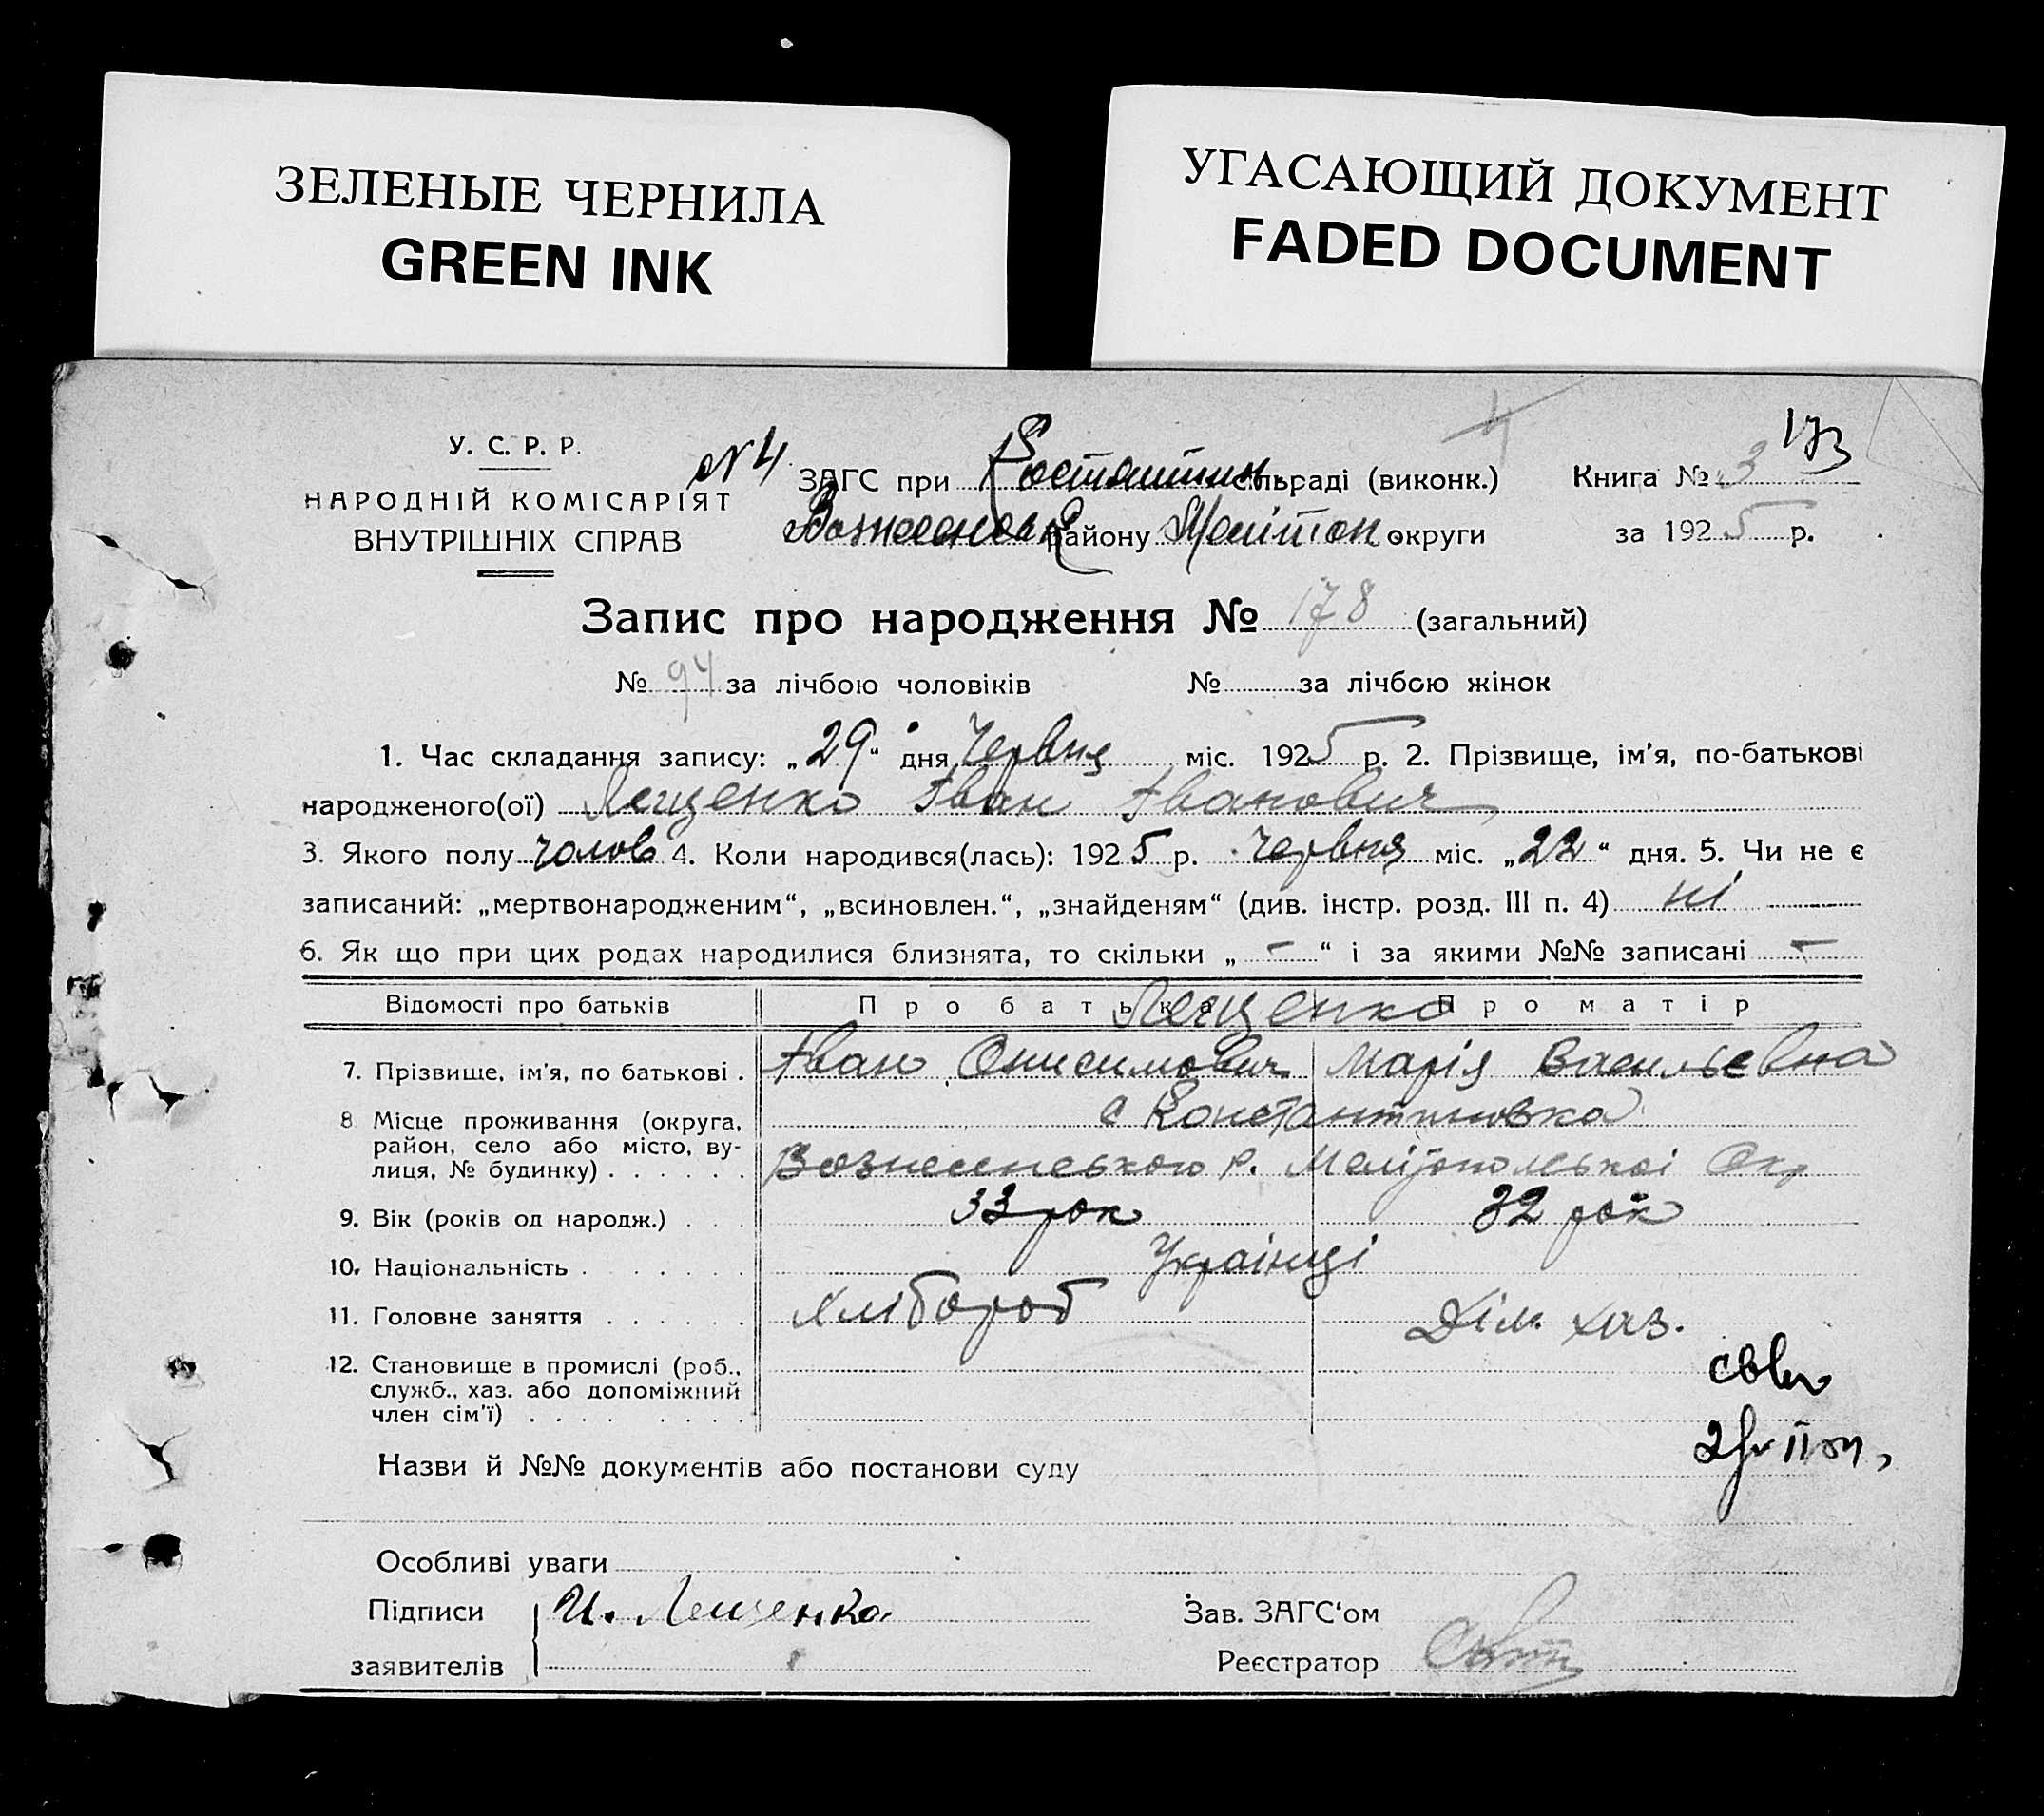 ЗЕЛЕНЫЕ ЧЕРНИЛА
GREEN INK
УГАСАЮЩИЙ ДОКУМЕНТ
FADED DOCUMENT
У. С. Р. Р.
НАРОДНІЙ КОМІСАРІЯТ
ВНУТРІШНІХ СПРАВ
№4 ЗАГС при Костянтин. сільраді (виконк.)
Вознесенськ району Мелітоп округи
Книга № 3 173
за 1925 р.
Запис про народження № 178 (загальний)
№ 94 за лічбою чоловіків № за лічбою жінок
1. Час складання запису: „29“ дня Червня міс. 1925 р. 2. Прізвище, ім’я, по-батькові
народженого(ої) Лещенко Іван Іванович
3. Якого полу чолов 4. Коли народився(лась): 1925 р. червня міс. „22“ дня. 5. Чи не є
записаний: „мертвонародженим“, „всиновлен.“, „знайденям“ (див. інстр. розд. III п. 4) ні
6. Як що при цих родах народилися близнята, то скільки „ - “ і за якими №№ записані -
Відомості про батьків Про батька Про матір
Лещенко
7. Прізвище, ім’я, по батькові . Іван Онисимович Марія Васильєвна
8 Місце проживання (округа, с Константиновка
район, село або місто, ву-
лиця, № будинку) . . . . . . Вознесенського р. Меліпопольскоі Окр
9. Вік (років од народж.) . . . 33 рок 32 рок
10. Національність . . . . . . Українці
11. Головне заняття . . . . . . Хлібороб Дім. хаз.
12. Становище в промислі (роб.,
служб., хаз. або допоміжний
член сім’ї) . . . . . . . .
Назви й №№ документів або постанови суду
Особливі уваги
Підписи И. Лещенко Зав. ЗАГС‘ом
заявителів Реєстратор